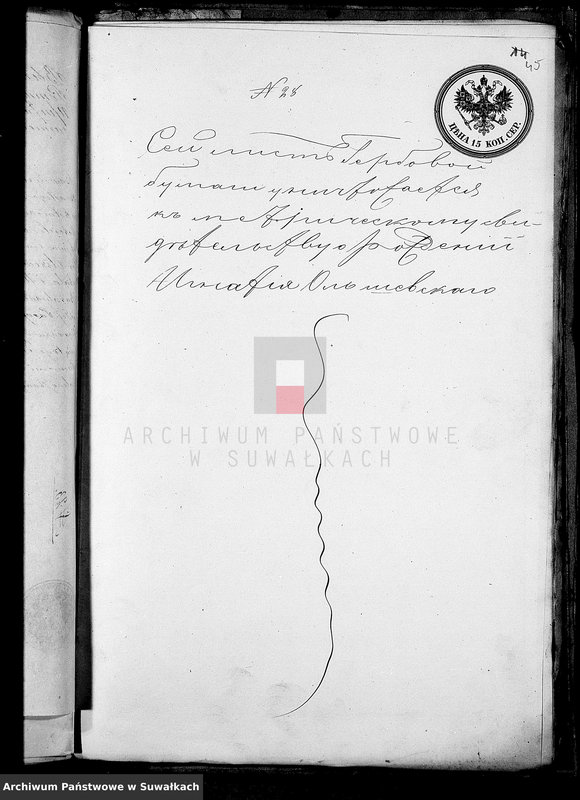 44
45
N 28
ЦѢНА 15 КОП. СЕР.
Сей листъ Гербовой
бумаги уничтожается
къ метрическому сви-
дѣтельству о рождении
Игнатія Ольшевскаго
ARCHIWUM PAŃSTWOWE
W SUWAŁKACH
Archiwum Państwowe w Suwałkach